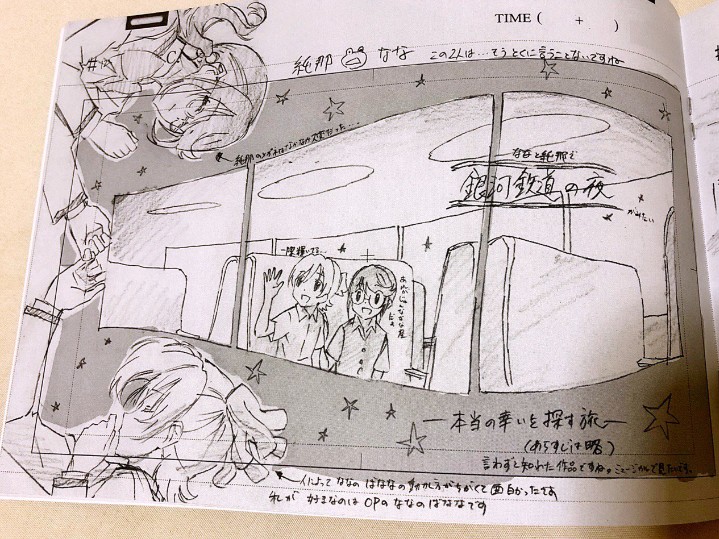 TIME ( + )
純那 なな この2人は…もうとくに言うことないですね
純那のメガネはなかなか大変だった…
ななと純那で
銀河鉄道の夜
がみたい
一際輝いてる…
あれがじゅんなななな星
だよ
―本当の幸いを探す旅―
(あらすじは略)
言わずと知れた作品ですね。ミュージカルで見たいです。
人によってななのばななの動かし方がちがくて面白かったです
私が好きなのはOPのななのばななです